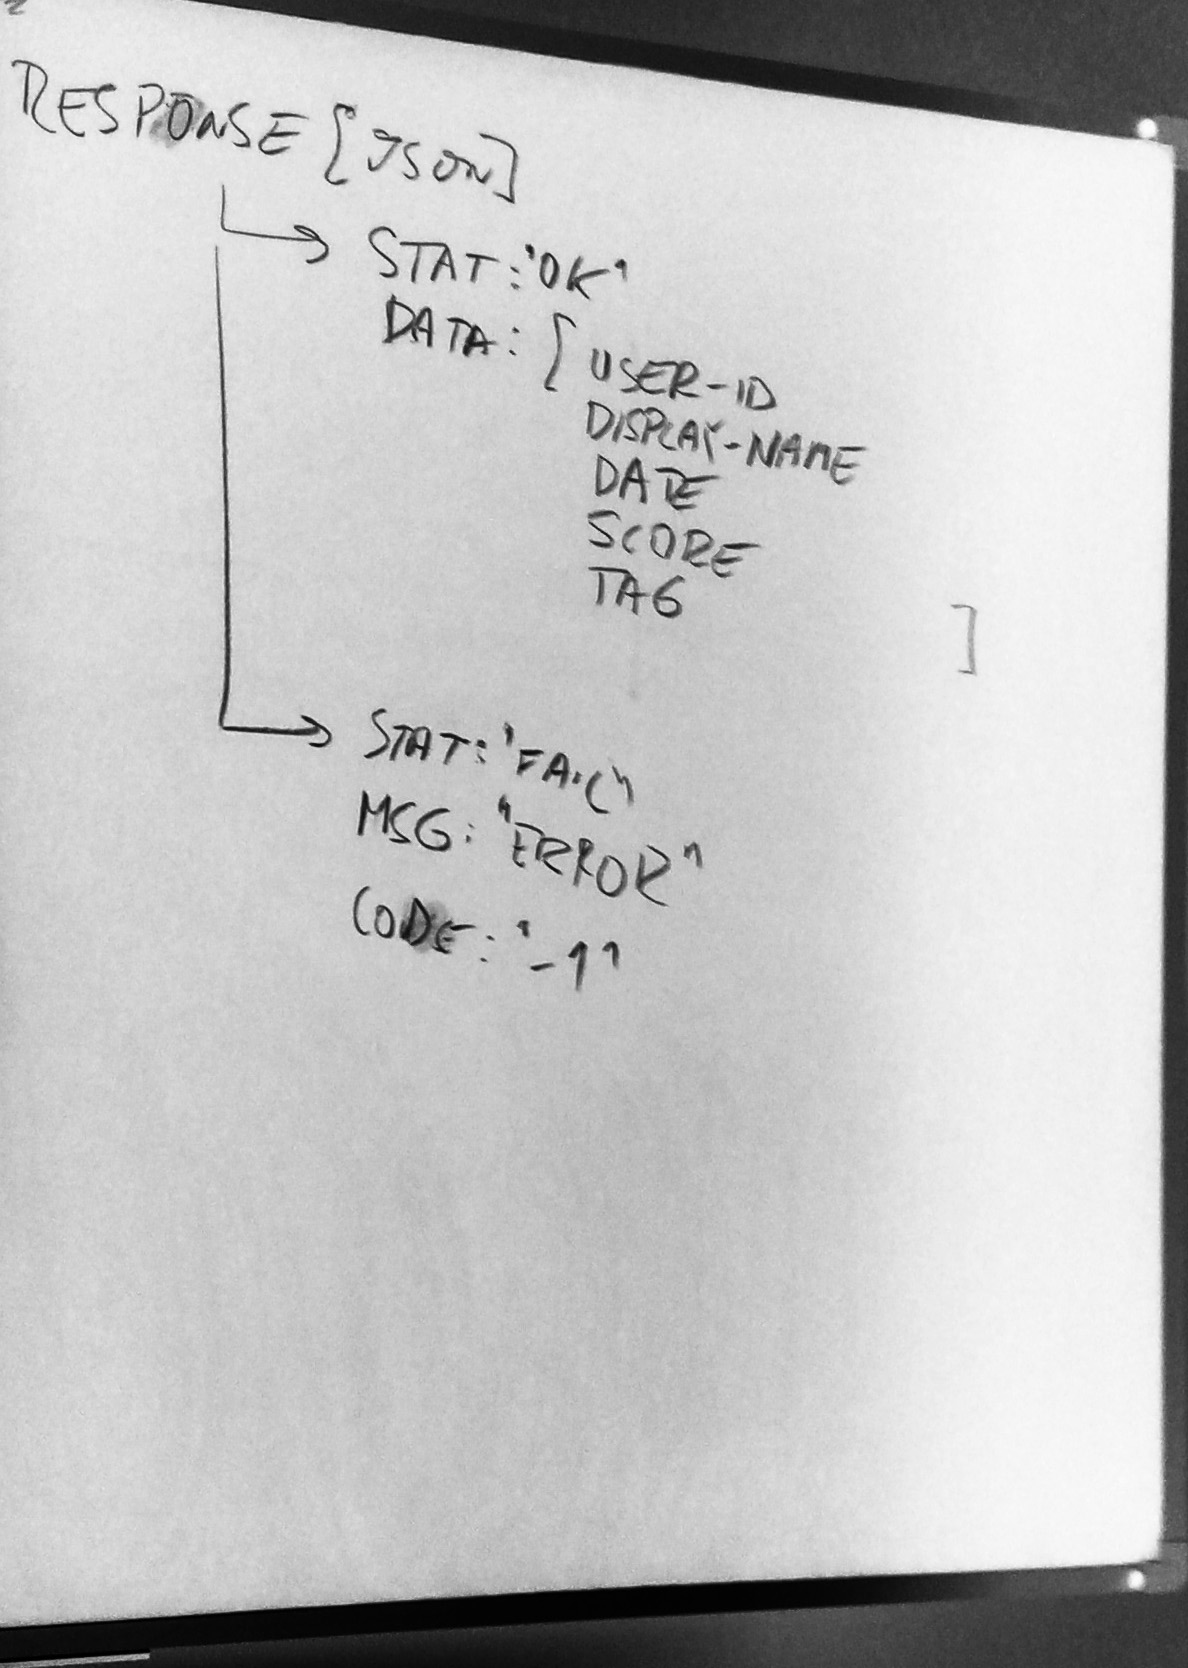 RESPONSE [JSON]
STAT: 'OK'
DATA: [ USER-ID
DISPLAY-NAME
DATE
SCORE
TAG
]
STAT: 'FAIL"
MSG: "ERROR"
CODE: '-1'